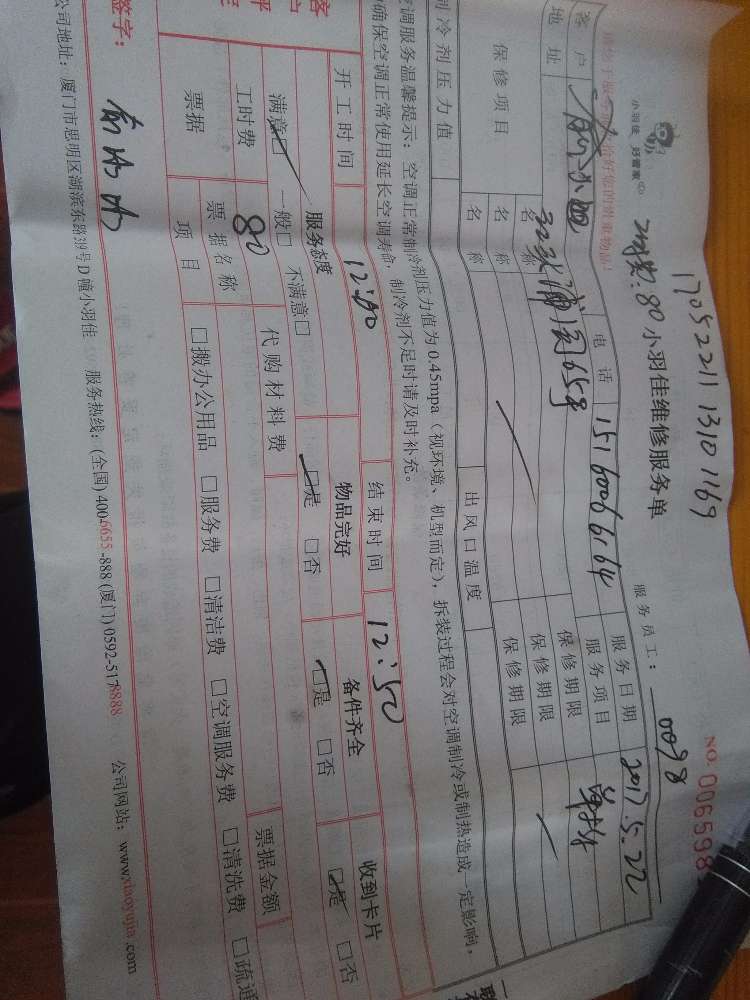 17052211 13101169
小羽佳 好管家
:80 小羽佳维修服务单
服务员工: 0098
NO. 006598
客户 小姐 电话 15160066164 服务日期 2017.5.22
地址 服务项目 单拆
保修项目 名称 保修期限
名称 保修期限
名称 保修期限
制冷剂压力值 出风口温度
空调服务温馨提示:空调正常制冷剂压力值为0.45mpa(视环境、机型而定),拆装过程会对空调制冷或制热造成一定影响,
确保空调正常使用延长空调寿命,制冷剂不足时请及时补充。
开工时间 结束时间 12:50
服务态度 物品完好 备件齐全 收到卡片
满意□ 一般□ 不满意□ □是 □否 □是 □否 □是 □否
工时费 80 代购材料费 票据金额
票据 票据名称
项目 □搬办公用品 □服务费 □清洁费 □空调服务费 □清洗费 □疏通
签字:
公司地址:厦门市思明区湖滨东路319号D幢小羽佳 服务热线:(全国)4006655-888(厦门)0592-5178888 公司网站:www.xiaoyujia.com